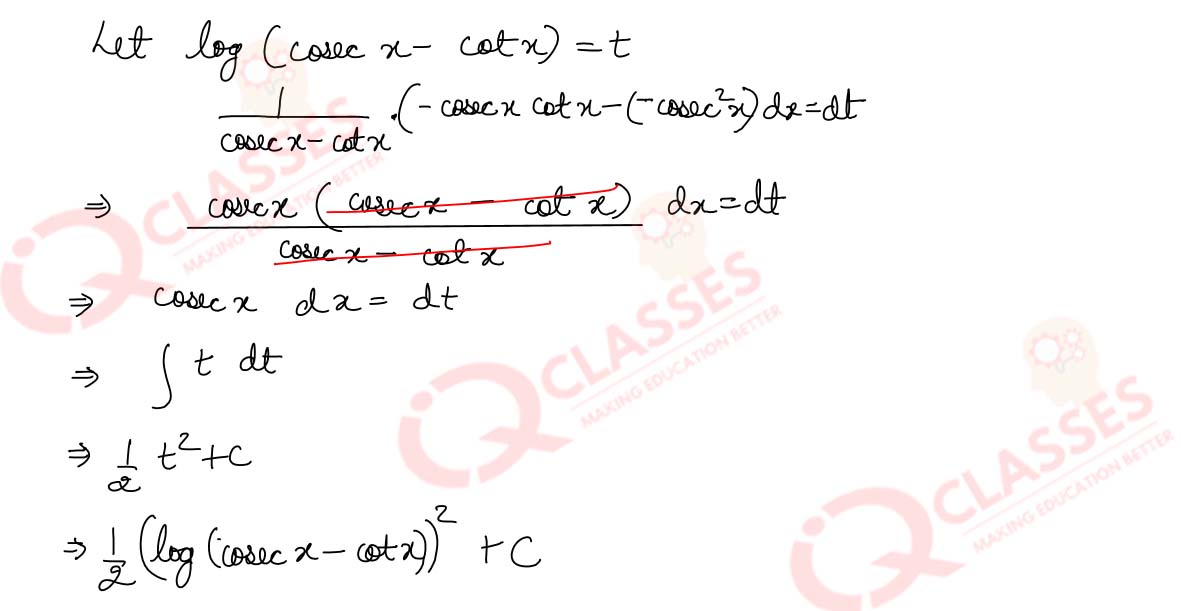 Let log (cosec x - cot x) = t
1/(cosec x - cot x) . (-cosec x cot x - (-cosec²x) dx = dt
⇒ cosec x (cosec x - cot x)/(cosec x - cot x) dx = dt
⇒ cosec x dx = dt
⇒ ∫ t dt
⇒ 1/2 t² + C
⇒ 1/2 (log (cosec x - cot x))² + C
iQ CLASSES
MAKING EDUCATION BETTER
iQ CLASSES
MAKING EDUCATION BETTER
iQ CLASSES
MAKING EDUCATION BETTER